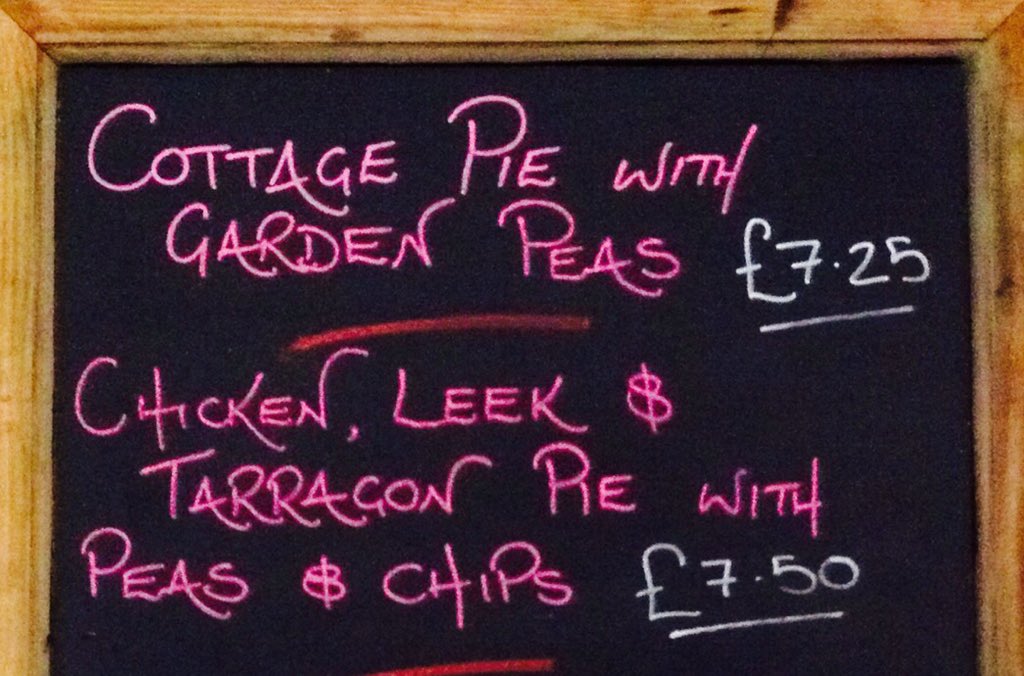 COTTAGE PIE WITH
GARDEN PEAS £7.25
CHICKEN, LEEK &
TARRAGON PIE WITH
PEAS & CHIPS £7.50